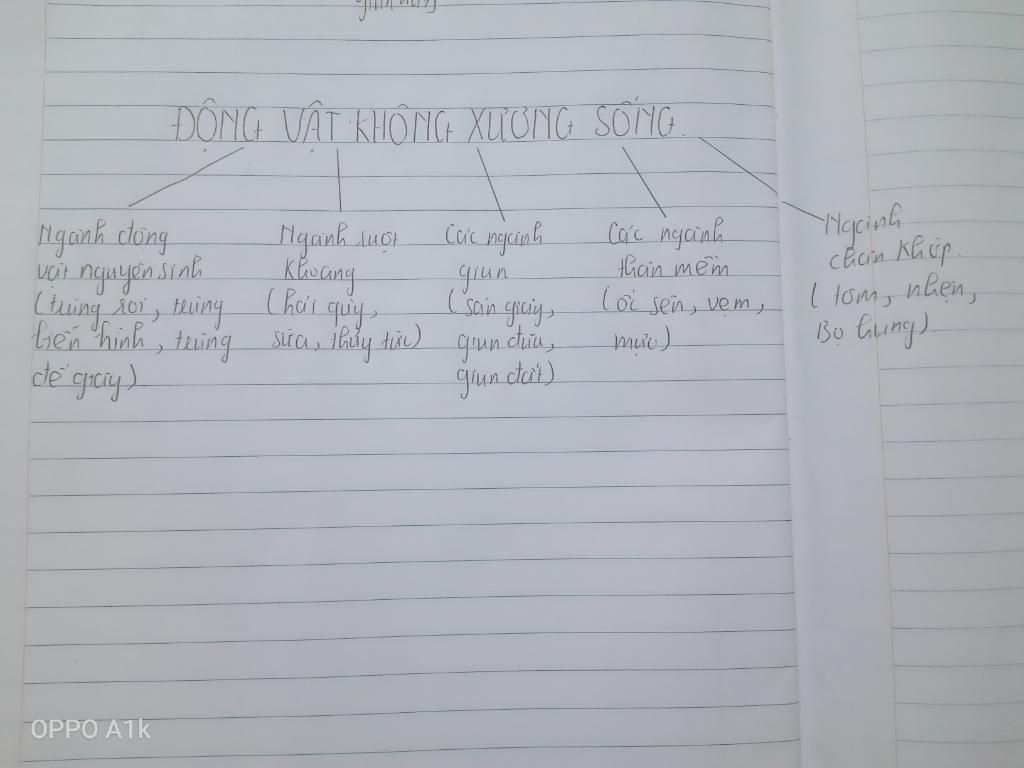 ĐỘNG VẬT KHÔNG XƯƠNG SỐNG
Ngành động
vật nguyên sinh
(trùng roi, trùng
biến hình, trùng
đế giày).
Ngành ruột
khoang
(hải quỳ,
sứa, thủy tức)
Các ngành
giun
(sán giây,
giun đũa,
giun đất)
Các ngành
thân mềm
(ốc sên, vẹm,
mực)
Ngành
chân khớp.
(tôm, nhện,
Bọ hung).
OPPO A1k